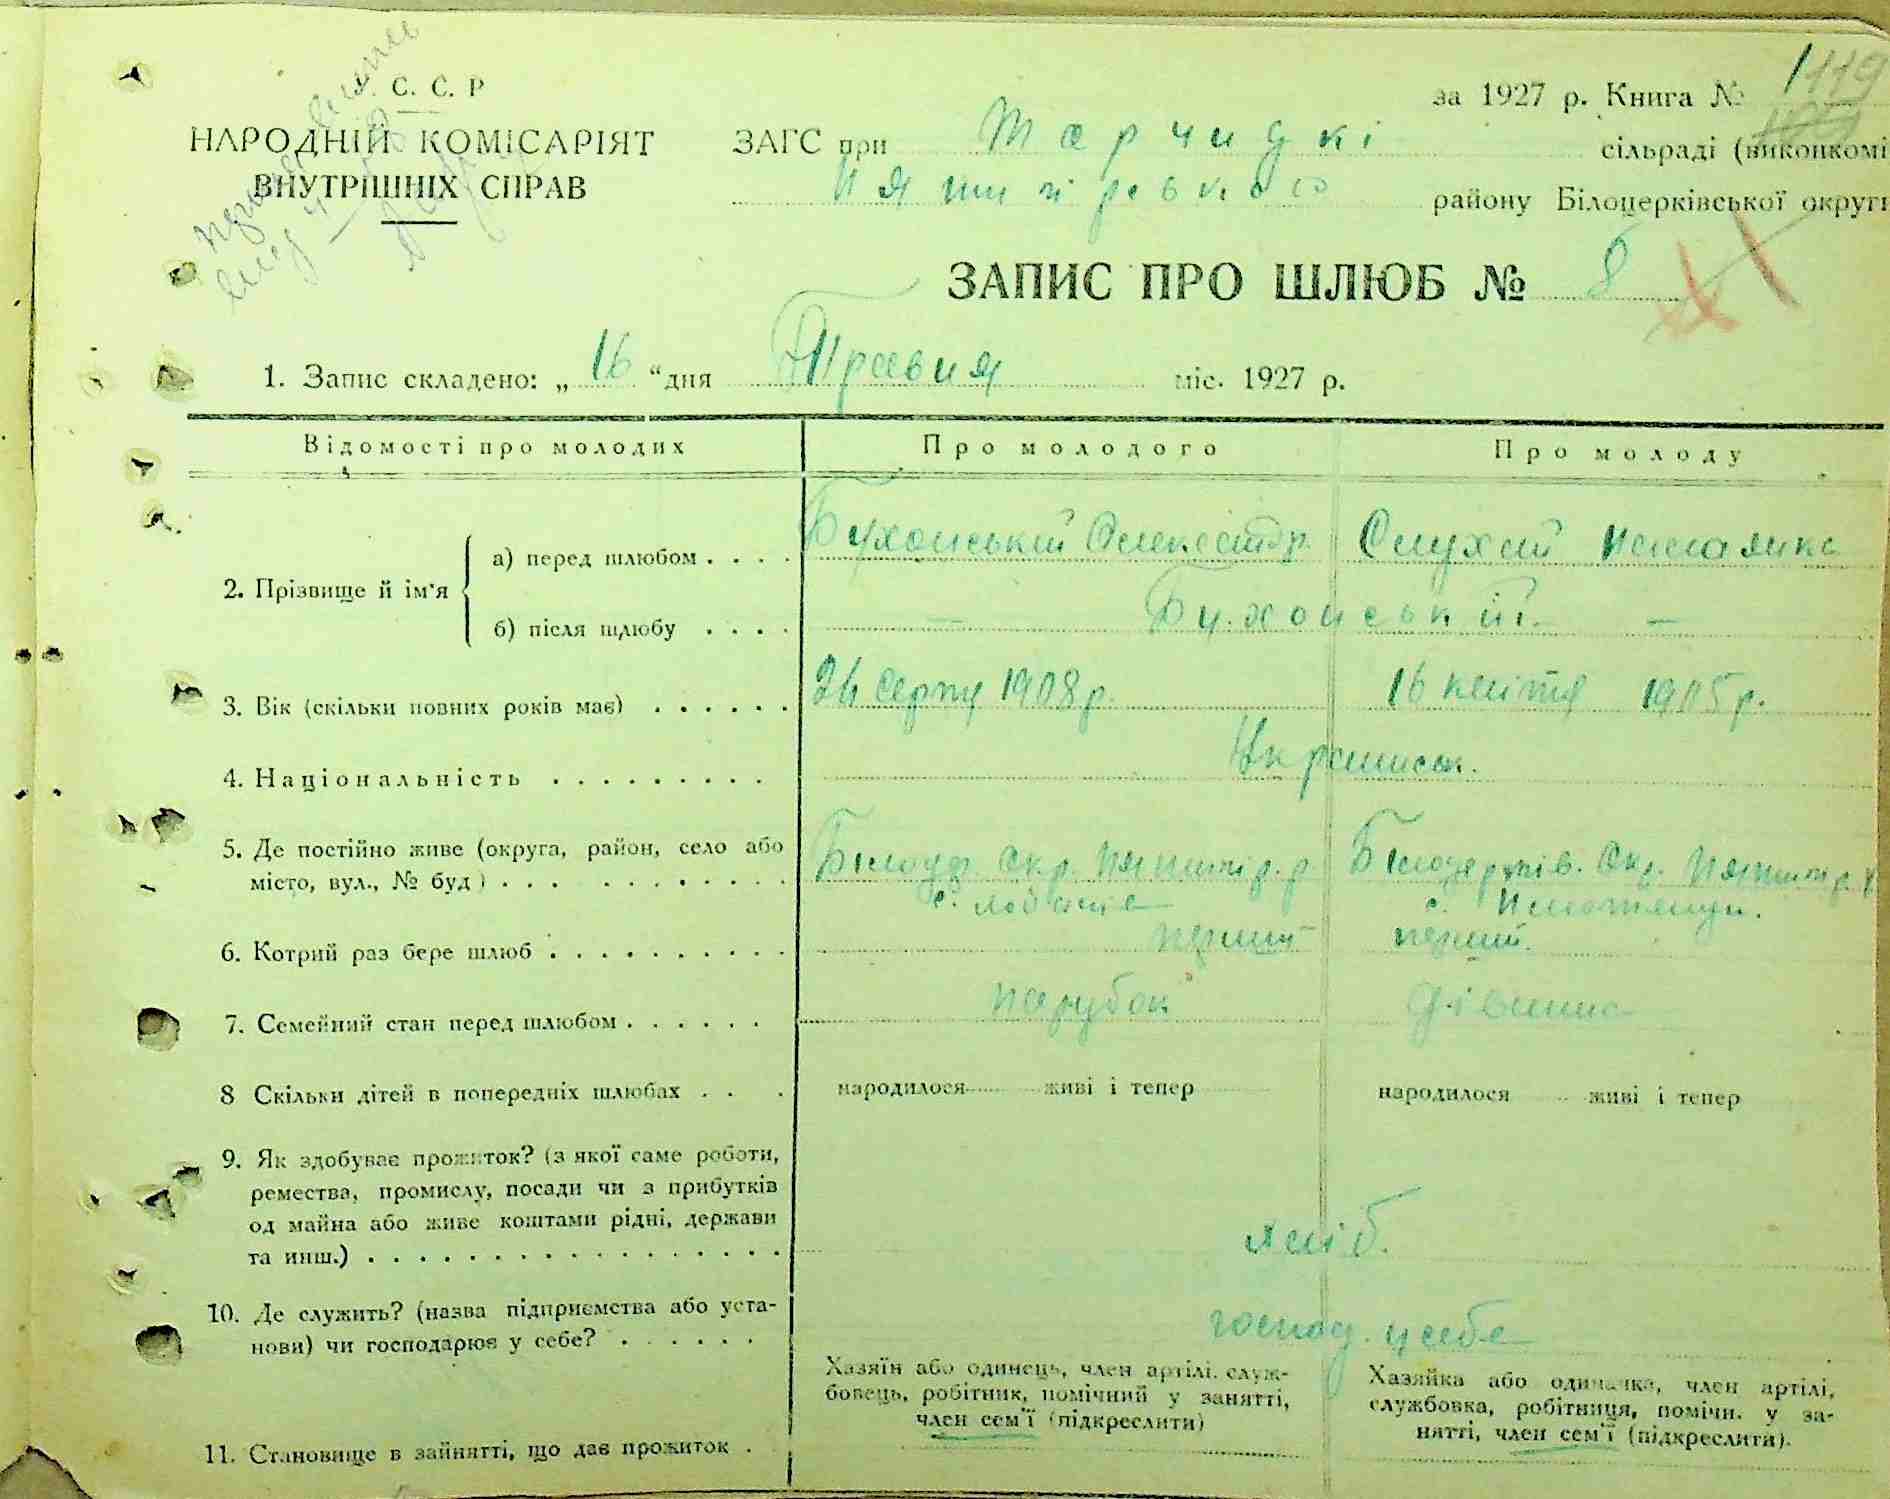 С. С. Р
НАРОДНІЙ КОМІСАРІЯТ
ВНУТРІШНІХ СПРАВ
за 1927 р. Книга № 1 119
ЗАГС при сільраді (виконкомі
району Білоцерківської округи
ЗАПИС ПРО ШЛЮБ № 8
1. Запис складено: „ 16 “ дня Травня міс. 1927 р.
Відомості про молодих Про молодого Про молоду
2. Прізвище й ім'я
а) перед шлюбом . . . . Бухонський Олександр Слухай
б) після шлюбу . . . . — Бухонський —
3. Вік (скільки повних років має) . . . . . . 24 серпня 1908 р. 16 квітня 1905 р.
4. Національність . . . . . . . . . Україн.
5. Де постійно живе (округа, район, село або
місто, вул., № буд) . . . . . . . . . . . . Білоцер. Окр. Пятигір. р Білоцерків. Окр. Пятигір. р
с. с.
6. Котрий раз бере шлюб . . . . . . . . . . перший перший.
7. Семейний стан перед шлюбом . . . . . . парубок дівчина
8 Скільки дітей в попередніх шлюбах . . . народилося живі і тепер народилося живі і тепер
9. Як здобуває прожиток? (з якої саме роботи,
ремества, промислу, посади чи з прибутків
од майна або живе коштами рідні, держави
та инш.) . . . . . . . . . . . . . . . . . хліб.
10. Де служить? (назва підприємства або уста-
нови) чи господарює у себе? . . . . . . господ. у себе
Хазяїн або одинець, член артілі, служ-
бовець, робітник, помічний у занятті,
член сем'ї (підкреслити)
Хазяйка або одиначка, член артілі,
службовка, робітниця, помічн. у за-
нятті, член сем'ї (підкреслити).
11. Становище в зайнятті, що дає прожиток .